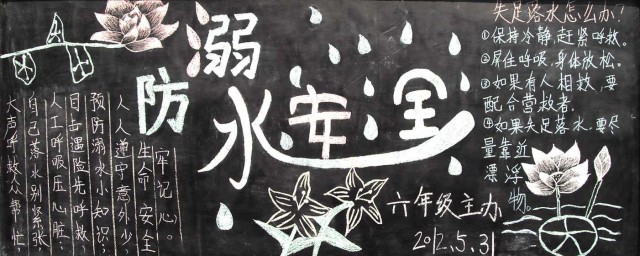 防溺水安全
大声呼救众帮忙,
自己落水别紧张,
人工呼吸压心脏;
目击遇险先呼救,
预防溺水小知识,
人人道中意外少,
生命安全
牢记心。
失足落水怎么办?
①保持冷静,赶紧呼救。
②屏住呼吸,身体放松。
③如果有人相救,要
配合营救者.
④如果失足落水.要尽
量靠近
漂浮
物。
六年级主办
2012.5.31